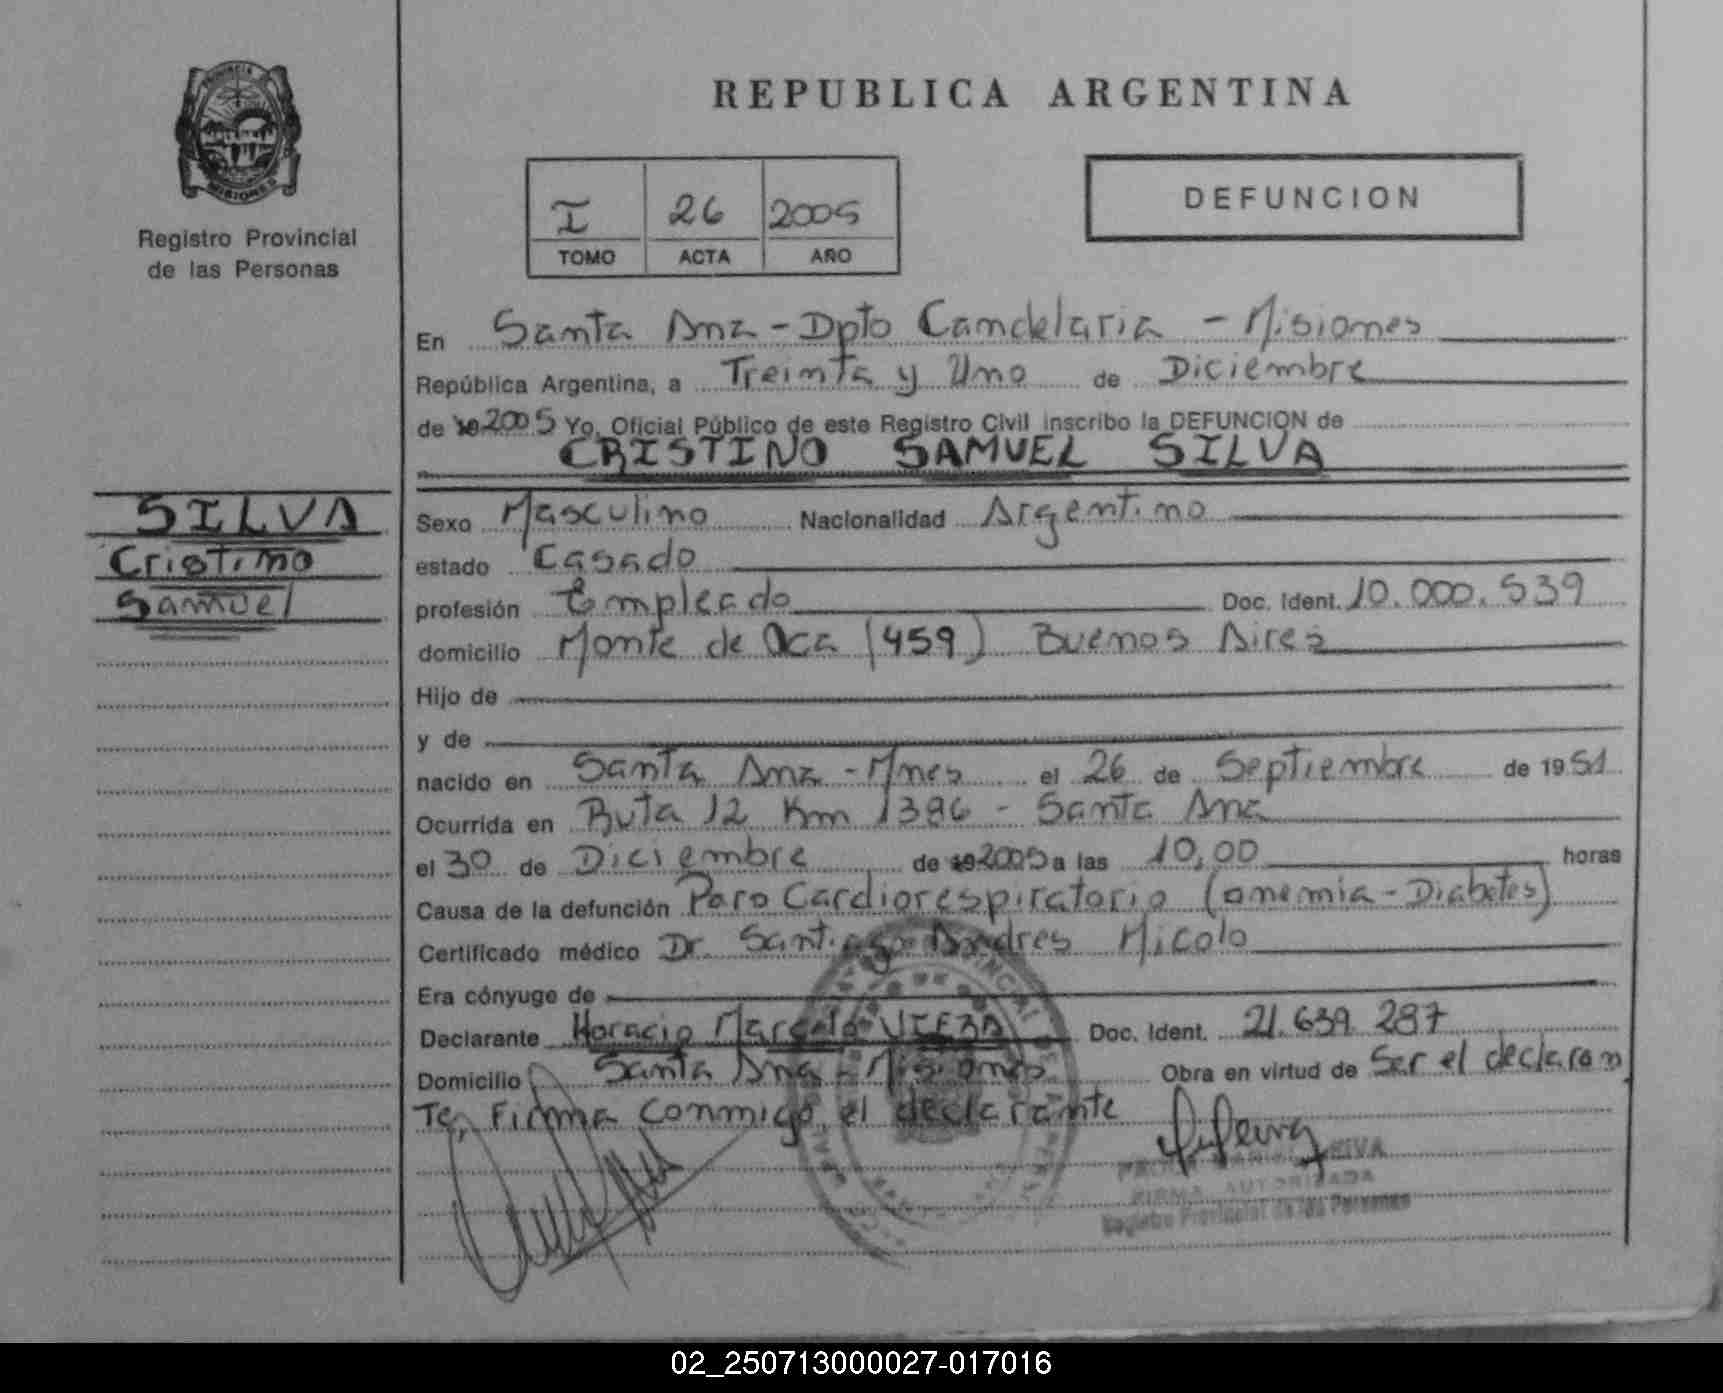 PROVINCIA DE
MISIONES
Registro Provincial
de las Personas
REPUBLICA ARGENTINA
I 26 2005
TOMO ACTA AÑO
DEFUNCION
En Santa Ana - Dpto Candelaria - Misiones
República Argentina, a Treinta y Uno de Diciembre
de 19 2005 Yo, Oficial Público de este Registro Civil inscribo la DEFUNCION de
CRISTINO SAMUEL SILVA
SILVA
Cristino
Samuel
Sexo Masculino Nacionalidad Argentino
estado Casado
profesión Empleado Doc. Ident. 10.000.539
domicilio Monte de Oca (459) Buenos Aires
Hijo de
y de
nacido en Santa Ana - Mnes el 26 de Septiembre de 1951
Ocurrida en Ruta 12 Km 1386 - Santa Ana
el 30 de Diciembre de 19 2005 a las 10,00 horas
Causa de la defunción Paro Cardiorespiratorio (anemia - Diabetes)
Certificado médico Dr. Santiago Andres Micolo
Era cónyuge de
Declarante Horacio Marcelo VIERA Doc. Ident. 21.639.287
Domicilio Santa Ana - Misiones Obra en virtud de Ser el declaran
te, Firma conmigo el declarante
FIRMA AUTORIZADA
Registro Provincial de las Personas
02_250713000027-017016